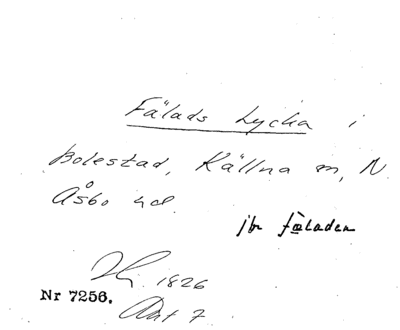 Fälads Lycka i
Bolestad, Källna sn, N.
Åsbo hd.
jfr fäladen
1826
Nr 7256.
Akt 7